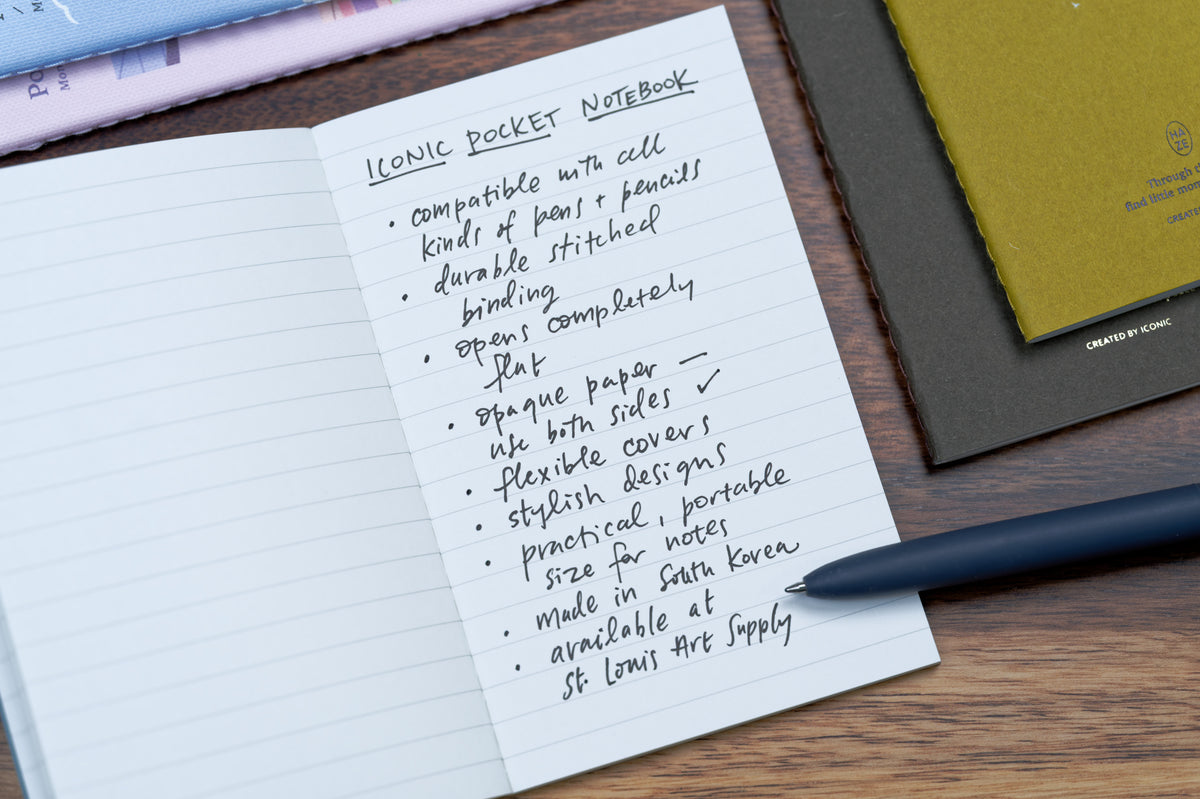 ICONIC POCKET NOTEBOOK
• compatible with all
kinds of pens + pencils
• durable stitched
binding
• opens completely
flat
• opaque paper —
use both sides ✓
• flexible covers
• stylish designs
• practical, portable
size for notes
• made in South Korea
• available at
St. Louis Art Supply
HAZE
Through
find little
CREATED
CREATED BY ICONIC